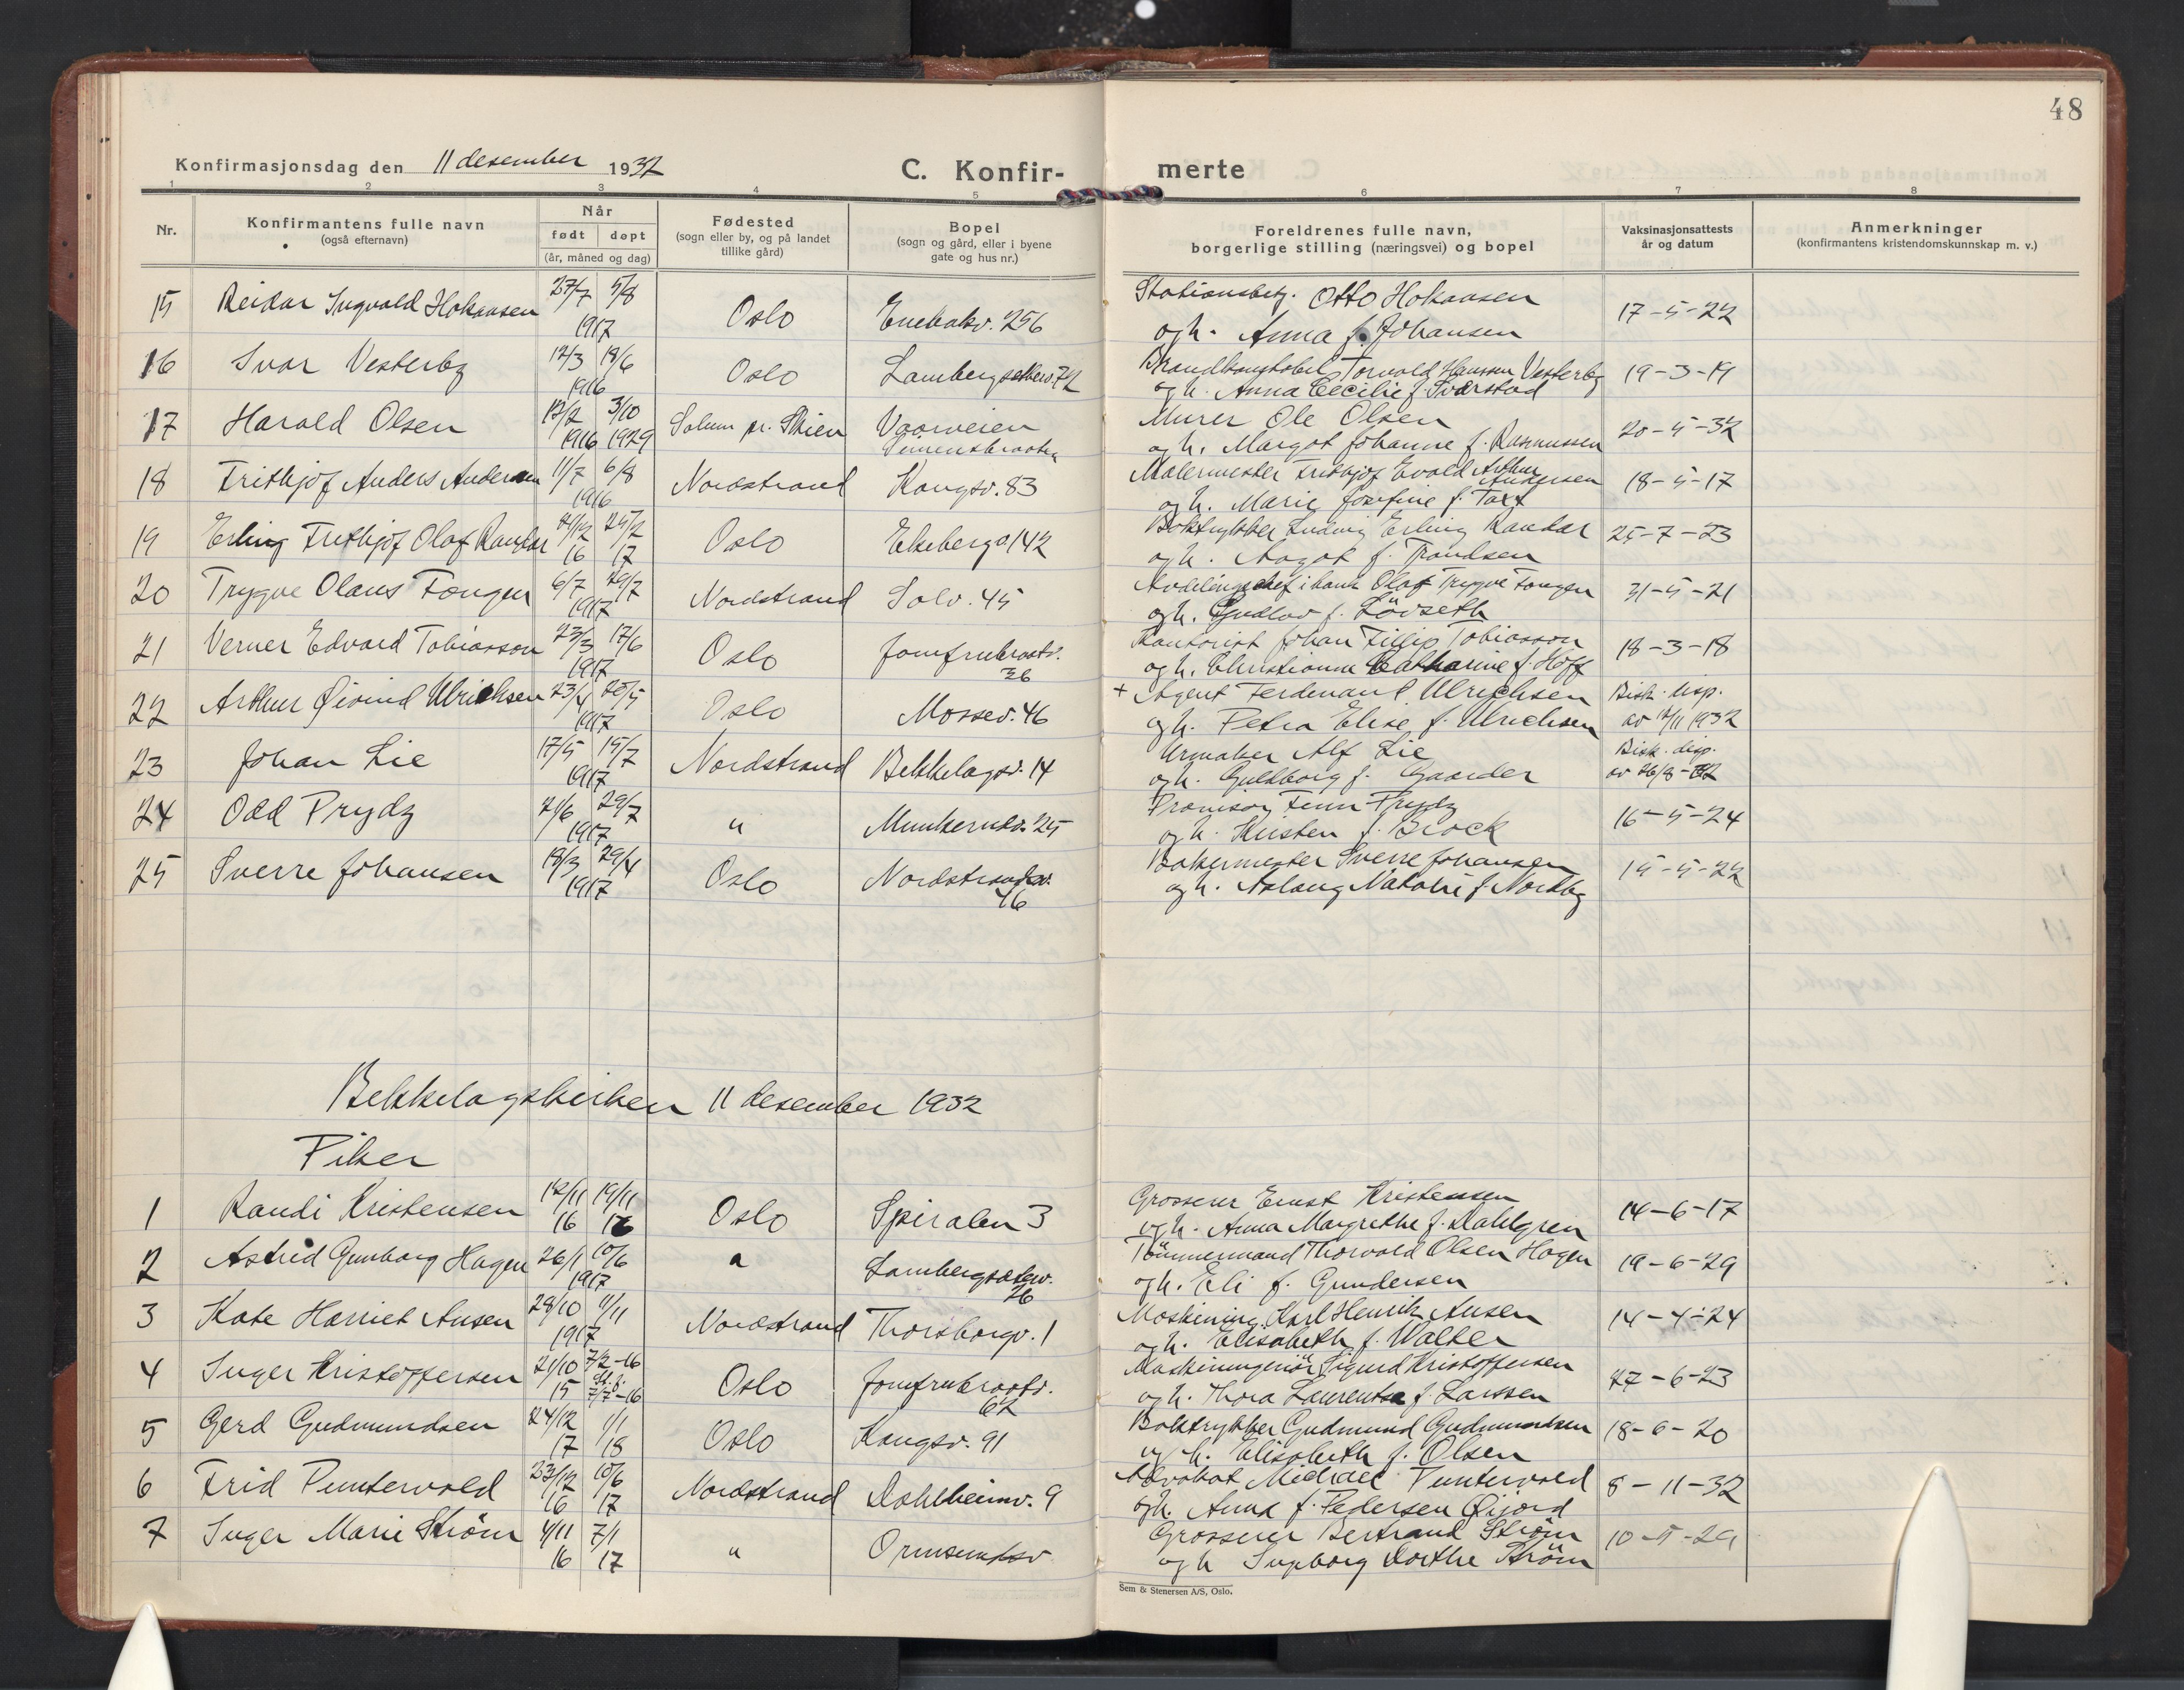 48
Konfirmasjonsdag den 11 desember 1932
C. Konfir-
merte
1 2 3 4 5 6 7 8
Nr.
Konfirmantens fulle navn
(også efternavn)
Når
født døpt
(år, måned og dag)
Fødested
(sogn eller by, og på landet
tillike gård)
Bopel
(sogn og gård, eller i byene
gate og hus nr.)
Foreldrenes fulle navn,
borgerlige stilling (næringsvei) og bopel
Vaksinasjonsattests
år og datum
Anmerkninger
(konfirmantens kristendomskunnskap m. v.)
15 Reidar Ingvald Hokansen 27/7 5/8 1917 Oslo Enebakv. 256
Stationsbetj. Otto Hokansen
og h. Anna f. Johansen
17-5-22
16 Ivar Vesterby 12/3 18/6 1916 Oslo Lambergseterv. 72
Torvald Hanssen Vesterby
og h. Anna Cecilie f. Sværstad
19-3-19
17 Harald Olsen 17/2 3/10 1916 1929 Solum pr. Skien Vaarveien
Simensbraaten
Murer Ole Olsen
og h. Margot Johanne f. Rasmussen
20-5-32
18 Frithjof Anders Andersen 11/7 6/8 1916 Nordstrand Kongsv. 83
Malermester Frithjof Evald Arthur Andersen
og h. Marie Josefine f. Taxt
18-5-17
19 Erling Frithjof Olaf Randar 16 17 Oslo Ekeberg 142
Boktrykker Ludvig Erling Randar
og h. Aagot f. Trondsen
25-7-23
20 Trygve Olaus Fongen 6/7 29/7 1917 Nordstrand Solv. 45
Avdelingschef i bank Olaf Trygve Fongen
og h. Gudlov f. Lövseth
31-5-21
21 Verner Edvard Tobiasson 23/3 17/6 1917 Oslo Jomfrubraatv. 36
Kontorist Johan Fillip Tobiasson
og h. Christianna Catharine f. Hoff
18-3-18
22 Arthur Øivind Ulrichsen 23/4 20/5 1917 Oslo Mossev. 46
+ Agent Ferdinand Ulrichsen
og h. Petra Elise f. Ulrichsen
Bisk. disp.
av 12/11 1932
23 Johan Lie 17/5 15/7 1917 Nordstrand Bekkelagsv. 14
Urmaker Alf Lie
og h. Guldborg f. Gaarder
Bisk. disp.
av 26/8-32
24 Odd Prydz 21/6 29/7 1917 " Munkerudv. 25
Finn Prydz
og h. Kirsten f. Brock
16-5-24
25 Sverre Johansen 18/3 29/4 1917 Oslo Nordstrandsv. 46
Bakermester Sverre Johansen
og h. Aslaug Natalie f. Nordby
15-5-22
Bekkelagskirken 11 desember 1932
Piker
1 Randi Kristensen 12/11 19/11 16 16 Oslo Spiralen 3
Grosserer Ernst Kristensen
og h. Anna Margrethe f. Dahlgren
14-6-17
2 Astrid Gunborg Hagen 26/1 10/6 1917 " Lambergseterv. 26
Tømmermand Thorvald Olsen Hagen
og h. Eli f. Gundersen
19-6-29
3 Kate Harriet Ansen 28/10 11/11 1917 Nordstrand Thorsborgv. 1
Maskining. Karl Henrik Ansen
og h. Elisabeth f. Walter
14-4-24
4 Inger Kristoffersen 21/10 15 7/2-16 St. f. 7/7-16 Oslo Jomfrubraatv. 62
Maskiningeniör Sigurd Kristoffersen
og h. Thora Laurentse f. Larssen
27-6-23
5 Gerd Gudmundsen 24/12 1/1 17 18 Oslo Kongsv. 91
Boktrykker Gudmund Gudmundsen
og h. Elisabeth f. Olsen
18-6-20
6 Frid Puntervold 23/12 10/6 16 17 Nordstrand Dahlheimv. 9
Advokat Michael Puntervold
og h. Anna f. Pedersen Øijord
8-11-32
7 Inger Marie Strøm 4/11 7/1 16 17 " Ormsundsv
Grosserer Bertrand Strøm
og h Ingborg Dorthe Strøm
10-5-29
Sem & Stenersen A/S, Oslo.